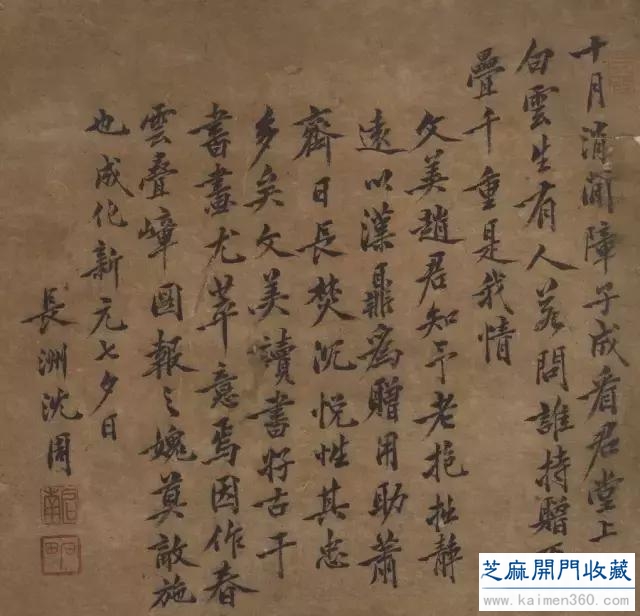 十月消閒障子成看君堂上
白雲生有人若問誰持贈
疊千重是我情
文美趙君知予老抱拙靜
遠以漢鼎為贈用助蕭
齋日長焚沉悅性其忠
多矣文美讀書好古于
書畫尤萃意焉因作春
雲疊嶂圖報之媿莫敵施
也成化新元七夕日
長洲沈周
啟南
芝麻開門收藏
www.kaimen360.com